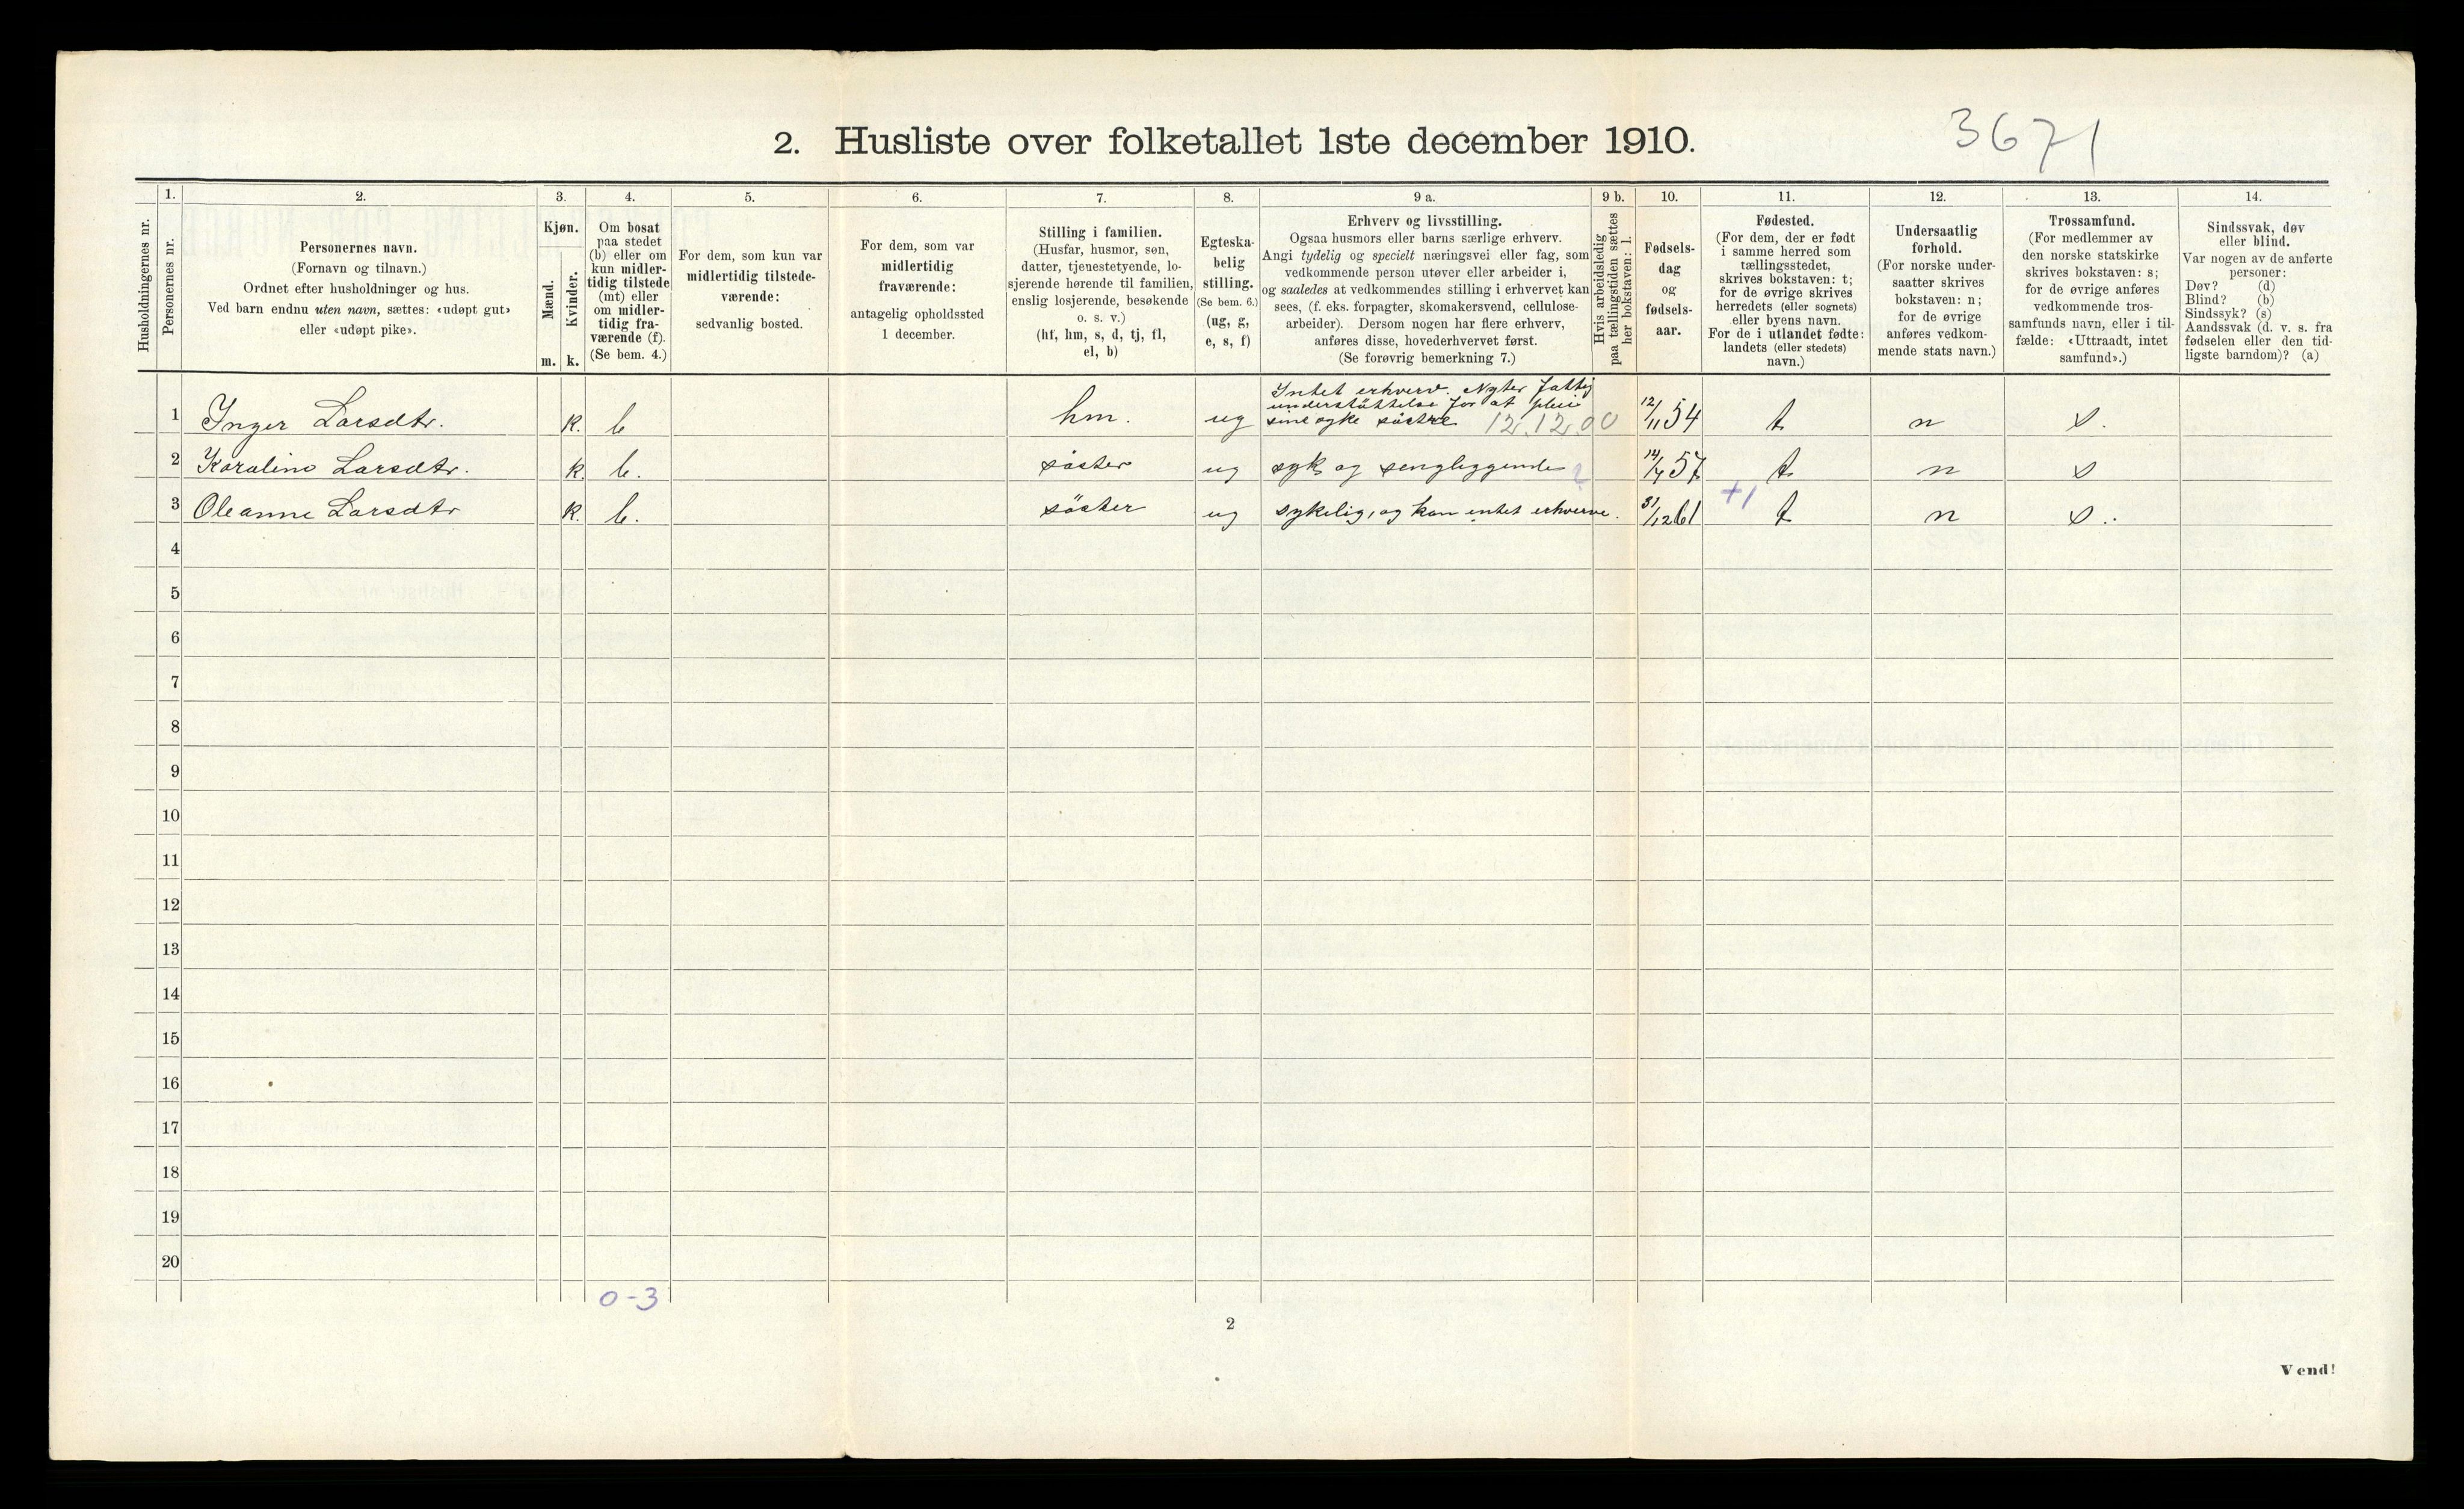 3671
2. Husliste over folketallet 1ste december 1910.
Husholdningernes nr.
1.
Personernes nr.
2.
Personernes navn.
(Fornavn og tilnavn.)
Ordnet efter husholdninger og hus.
Ved barn endnu uten navn, sættes: «udøpt gut»
eller «udøpt pike».
3.
Kjøn.
Mænd.
Kvinder.
m. k.
4.
Om bosat
paa stedet
(b) eller om
kun midler-
tidig tilstede
(mt) eller
om midler-
tidig fra-
værende (f).
(Se bem. 4.)
5.
For dem, som kun var
midlertidig tilstede-
værende:
sedvanlig bosted.
6.
For dem, som var
midlertidig
fraværende:
antagelig opholdssted
1 december.
7.
Stilling i familien.
(Husfar, husmor, søn,
datter, tjenestetyende, lo-
sjerende hørende til familien,
enslig losjerende, besøkende
o. s. v.)
(hf, hm, s, d, tj, fl,
el, b)
8.
Egteska-
belig
stilling.
(Se bem. 6.)
(ug, g,
e, s, f)
9 a.
Erhverv og livsstilling.
Ogsaa husmors eller barns særlige erhverv.
Angi tydelig og specielt næringsvei eller fag, som
vedkommende person utøver eller arbeider i,
og saaledes at vedkommendes stilling i erhvervet kan
sees, (f. eks. forpagter, skomakersvend, cellulose-
arbeider). Dersom nogen har flere erhverv,
anføres disse, hovederhvervet først.
(Se forøvrig bemerkning 7.)
9 b.
Hvis arbeidsledig
paa tællingstiden sættes
her bokstaven: l.
10.
Fødsels-
dag
og
fødsels-
aar.
11.
Fødested.
(For dem, der er født
i samme herred som
tællingsstedet,
skrives bokstaven: t;
for de øvrige skrives
herredets (eller sognets)
eller byens navn.
For de i utlandet fødte:
landets (eller stedets)
navn.)
12.
Undersaatlig
forhold.
(For norske under-
saatter skrives
bokstaven: n;
for de øvrige
anføres vedkom-
mende stats navn.)
13.
Trossamfund.
(For medlemmer av
den norske statskirke
skrives bokstaven: s;
for de øvrige anføres
vedkommende tros-
samfunds navn, eller i til-
fælde: «Uttraadt, intet
samfund».)
14.
Sindssvak, døv
eller blind.
Var nogen av de anførte
personer:
Døv? (d)
Blind? (b)
Sindssyk? (s)
Aandssvak (d. v. s. fra
fødselen eller den tid-
ligste barndom)? (a)
Intet erhverv. Nyter fattig
understøttelse for at pleie
1 Inger Larsdtr. k. b hm. ug sine syke søstre 12.12.00 12/11 54 t n s.
2 Karoline Larsdtr. k. b. søster ug syk og sengliggende 14/7 57 t n s
+1
3 Oleanne Larsdtr k. b. søster ug sykelig, og kan intet erhverve. 31/12 61 t n s.
4
5
6
7
8
9
10
11
12
13
14
15
16
17
18
19
20
0-3
2
Vend!